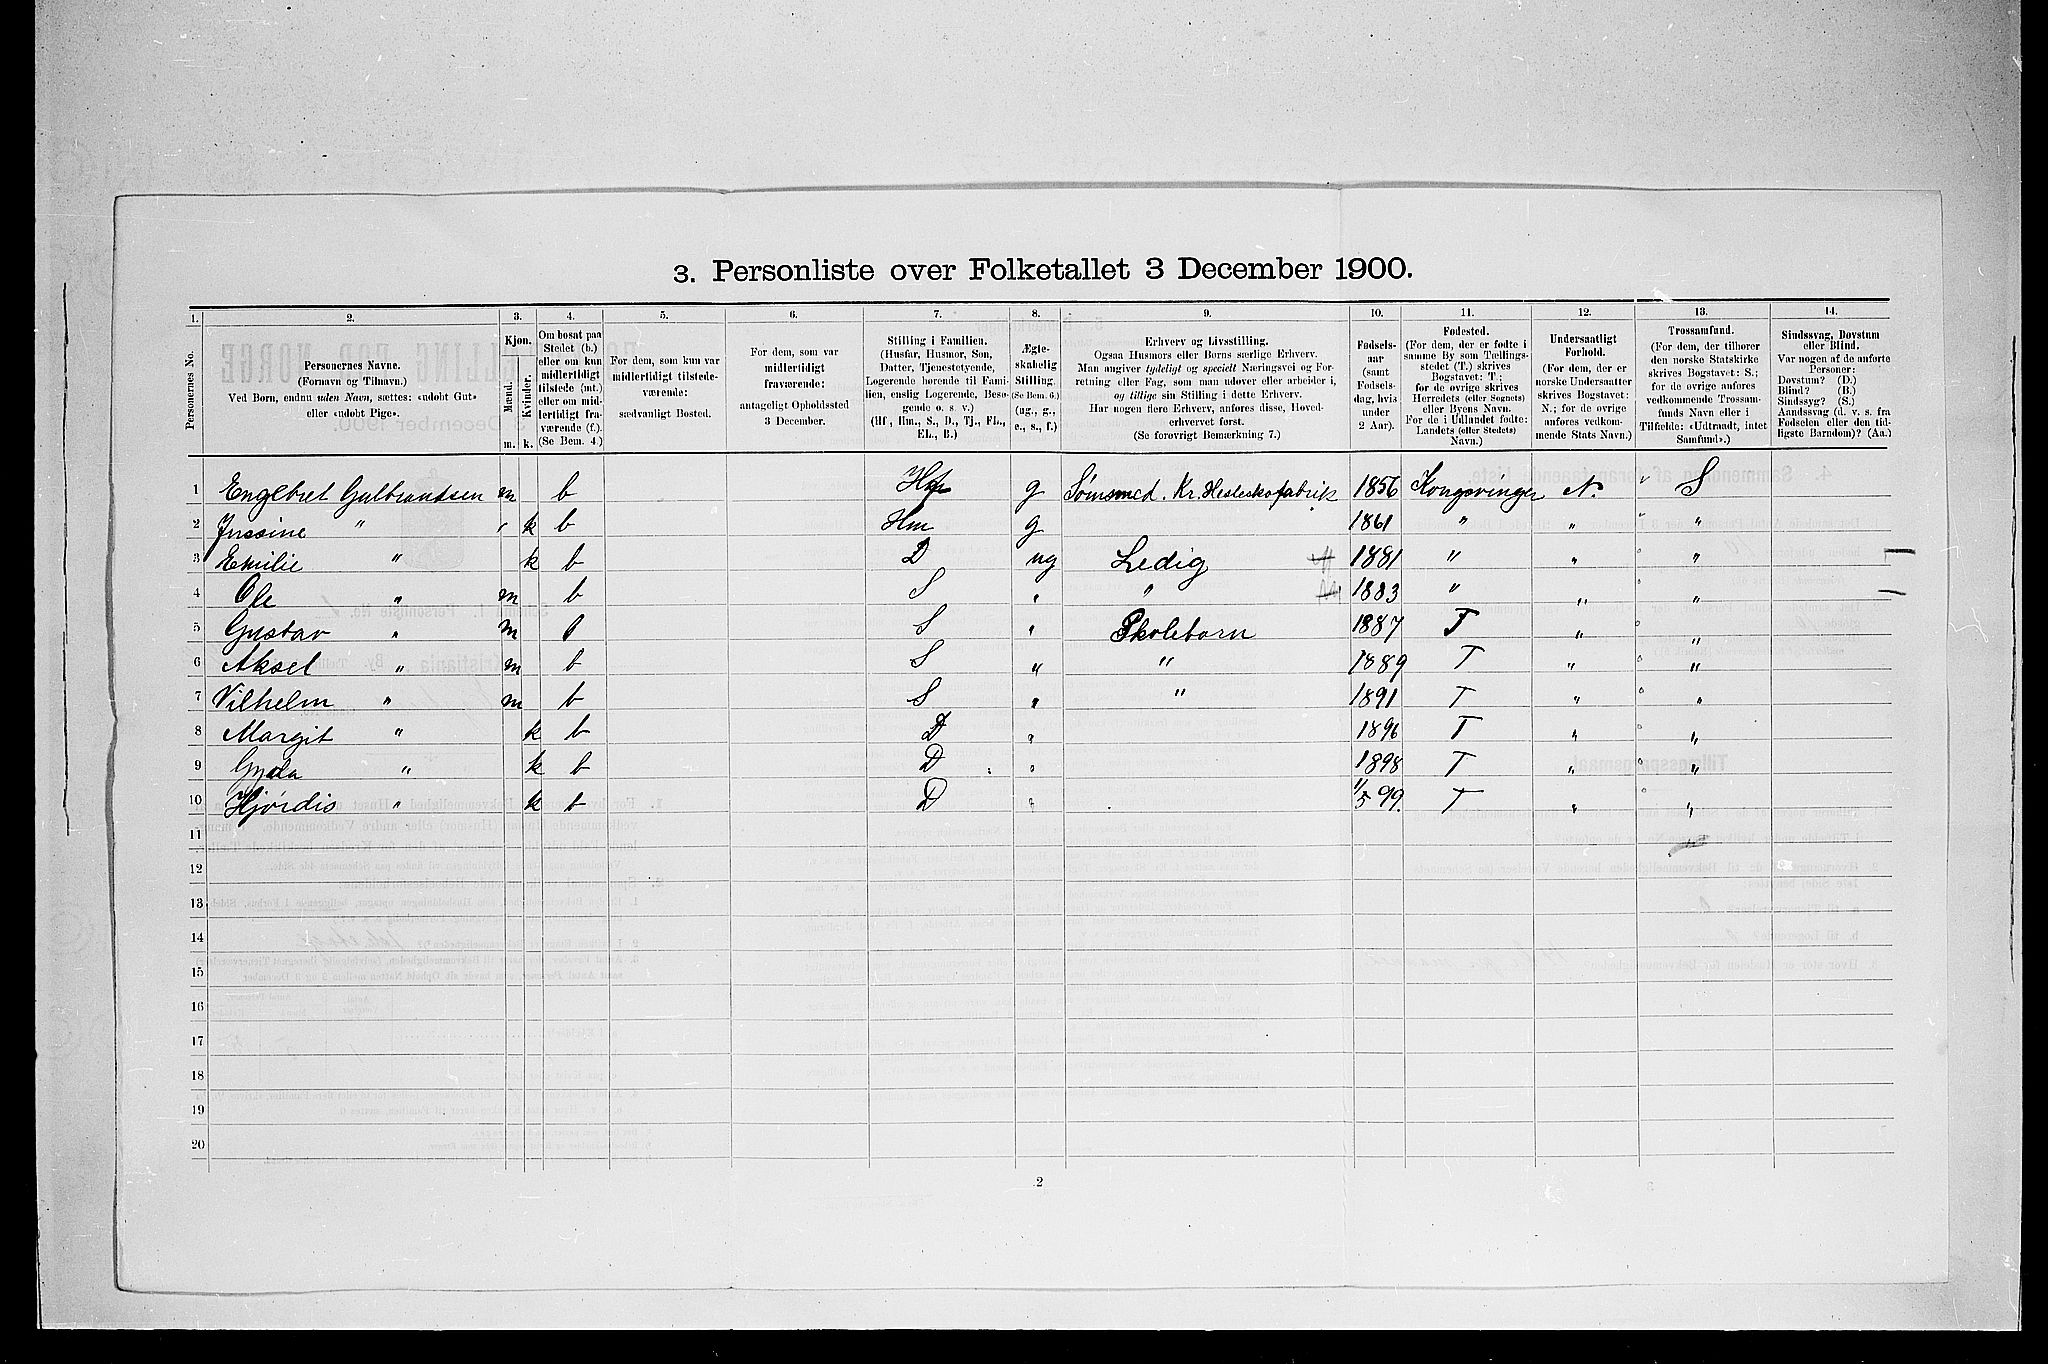 3. Personliste over Folketallet 3 December 1900.
1. 2. 3. 4. 5. 6. 7. 8. 9. 10. 11. 12. 13. 14.
Personernes No.
Personernes Navne.
(Fornavn og Tilnavn.)
Ved Børn, endnu uden Navn, sættes: «udøbt Gut»
eller «udøbt Pige».
Kjøn.
Mænd. Kvinder.
m. k.
Om bosat paa
Stedet (b.)
eller om kun
midlertidigt
tilstede (mt.)
eller om mid-
lertidigt fra-
værende (f.).
(Se Bem. 4.)
For dem, som kun var
midlertidigt tilstede-
værende:
sædvanligt Bosted.
For dem, som var
midlertidigt
fraværende:
antageligt Opholdssted
3 December.
Stilling i Familien.
(Husfar, Husmor, Søn,
Datter, Tjenestetyende,
Logerende hørende til Fami-
lien, enslig Logerende, Besø-
gende o. s. v.)
(Hf, Hm., S., D., Tj., FL.,
EL., B.)
Ægte-
skabelig
Stilling.
(Se Bem. 6.)
(ug., g.,
e., s., f.)
Erhverv og Livsstilling.
Ogsaa Husmors eller Børns særlige Erhverv.
Man angiver tydeligt og specielt Næringsvei og For-
retning eller Fag, som man udøver eller arbeider i,
og tillige sin Stilling i dette Erhverv.
Har nogen flere Erhverv, anføres disse, Hoved-
erhvervet først.
(Se forøvrigt Bemærkning 7.)
Fødsels-
aar
(samt
Fødsels-
dag, hvis
under
2 Aar).
Fødested.
(For dem, der er fødte i
samme By som Tællings-
stedet (T.) skrives
Bogstavet: T.;
for de øvrige skrives
Herredets (eller Sognets)
eller Byens Navn.
For de i Udlandet fødte:
Landets (eller Stedets)
Navn.)
Undersaatligt
Forhold.
(For dem, der er
norske Undersaatter
skrives Bogstavet:
N.; for de øvrige
anføres vedkom-
mende Stats Navn.)
Trossamfund.
(For dem, der tilhører
den norske Statskirke
skrives Bogstavet: S.;
for de øvrige anføres
vedkommende Trossam-
funds Navn eller i
Tilfælde: «Udtraadt, intet
Samfund».)
Sindssvag, Døvstum
eller Blind.
Var nogen af de anførte
Personer:
Døvstum? (D.)
Blind? (B.)
Sindssyg? (S.)
Aandssvag (d. v. s. fra
Fødselen eller den tid-
ligste Barndom)? (Aa.)
1 Engebret Gulbrandsen m b Hf g Sømsmed. Kr. Hesteskofabrik 1856 Kongsvinger N. S
2 Jussine " k b Hm g 1861 " " "
3 Emilie " k b D ug Ledig 1881 " " "
4 Ole " m b S " " 1883 " " "
5 Gustav " m b S " Skolebarn 1887 T " "
6 Aksel " m b S " " 1889 T " "
7 Vilhelm " m b S " " 1891 T " "
8 Margit " k b D " 1896 T " "
9 Gyda " k b D " 1898 T " "
10 Hjørdis " k b D " 1/5 99. T " "
11
12
13
14
15
16
17
18
19
20
2